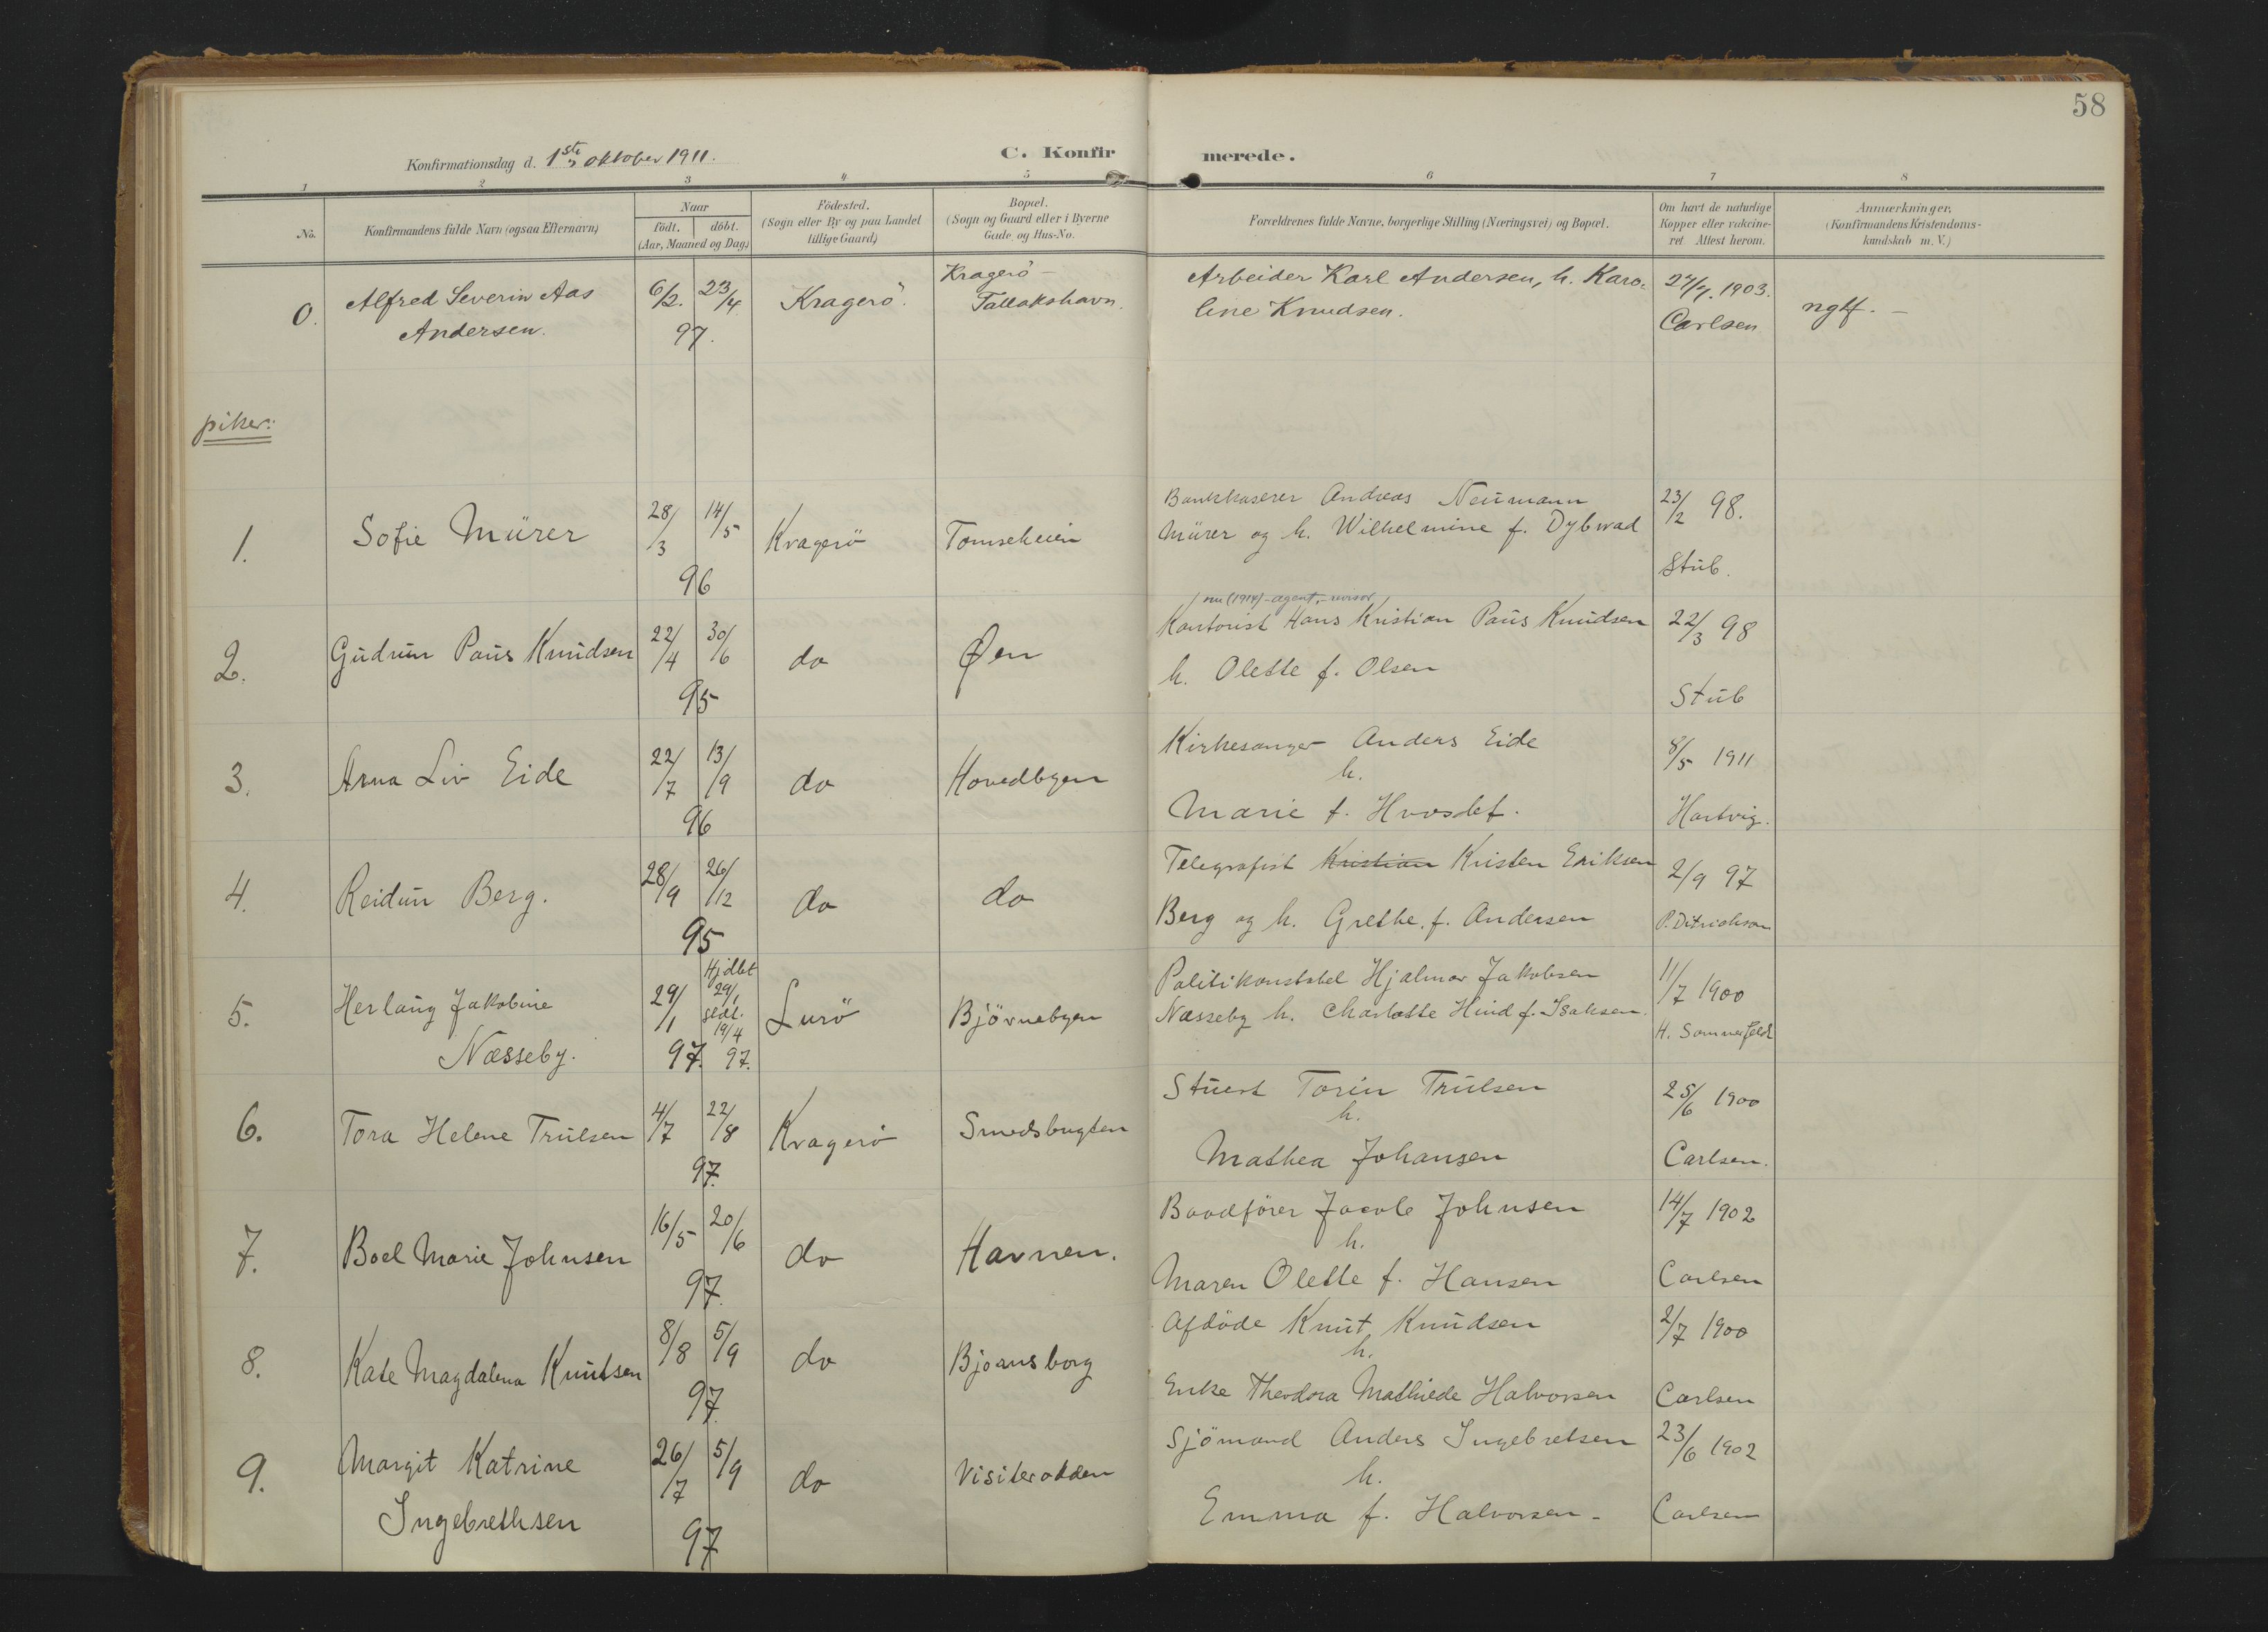 58
Konfirmationsdag d. 1ste oktober 1911.
C. Konfir merede.
1 2 3 4 5 6 7 8
No.
Konfirmandens fulde Navn (ogsaa Efternavn)
Naar
født. döbt.
(Aar, Maaned og Dag.)
Födested.
(Sogn eller By og paa Landet
tillige Gaard)
Bopæl.
(Sogn og Gaard eller i Byerne
Gade og Hus-No.
Forældrenes fulde Navne, borgerlige Stilling (Næringsvei) og Bopæl.
Om havt de naturlige
Kopper eller vakcine-
ret Attest herom.
Anmærkninger,
(Konfirmandens Kristendoms-
kundskab m. V.)
0. Alfred Severin Aas
Andersen.
6/2. 23/4
97.
Kragerö.
Kragerö -
Tallakshavn.
Arbeider Karl Andersen, h. Karo-
line Knudsen.
1903.
Carlsen
ngtf. -
piker:
1. Sofie Mürer
28/3 14/5
96
Kragerö
Tomseheien
Bankkaserer Andreas Neumann
Mürer og h. Wilhelmine f. Dybwad
98.
Stub.
2. Gudrun Paus Knudsen
22/4 30/6
95
do
Øen
nu (1914) - agent, - revisor
Kontorist Hans Kristian Paus Knudsen
h. Olette f. Olsen
22/3 98
Stub
3. Arna Liv Eide
22/7 13/9
96
do
Hovedbyen
Kirkesanger Anders Eide
h.
Marie f. Hvoslef.
8/5 1911
Hartvig.
4. Reidun Berg.
28/9 26/12
95
do
do
Telegrafist Kristian Kristen Eriksen
Berg og h. Grethe f. Andersen
2/9 97
P. Ditrichson
5. Herlaug Jakobine
Næsseby.
29/1
97.
Hjdbt
29/1
19/4
97.
Lurö
Björnebyen
Politikonstabel Hjalmar Jakobsen
Næsseby h. Charlotte Hind f. Isaksen.
11/7 1900
H. Sommerfeldt
6. Tora Helene Trulsen
4/7 22/8
97.
Kragerö
Smedsbugten
Stuert Torin Trulsen
h.
Mathea Johansen
25/6 1900
Carlsen.
7. Boel Marie Johnsen
16/5 20/6
97.
do
Havnen.
Baadförer Jacob Johnsen
h.
Maren Olette f. Hansen
14/7 1902
Carlsen
8. Kate Magdalena Knutsen
8/8 5/9
97.
do
Bjørnsborg
Afdöde Knut Knudsen
h.
Enke Theodora Mathilde Halvorsen
2/7 1900
Carlsen
9. Margit Katrine
Ingebrethsen
26/7 5/9
97
do
Visiterodden
Sjömand Anders Ingebretsen
h.
Emma f. Halvorsen -
23/6 1902
Carlsen